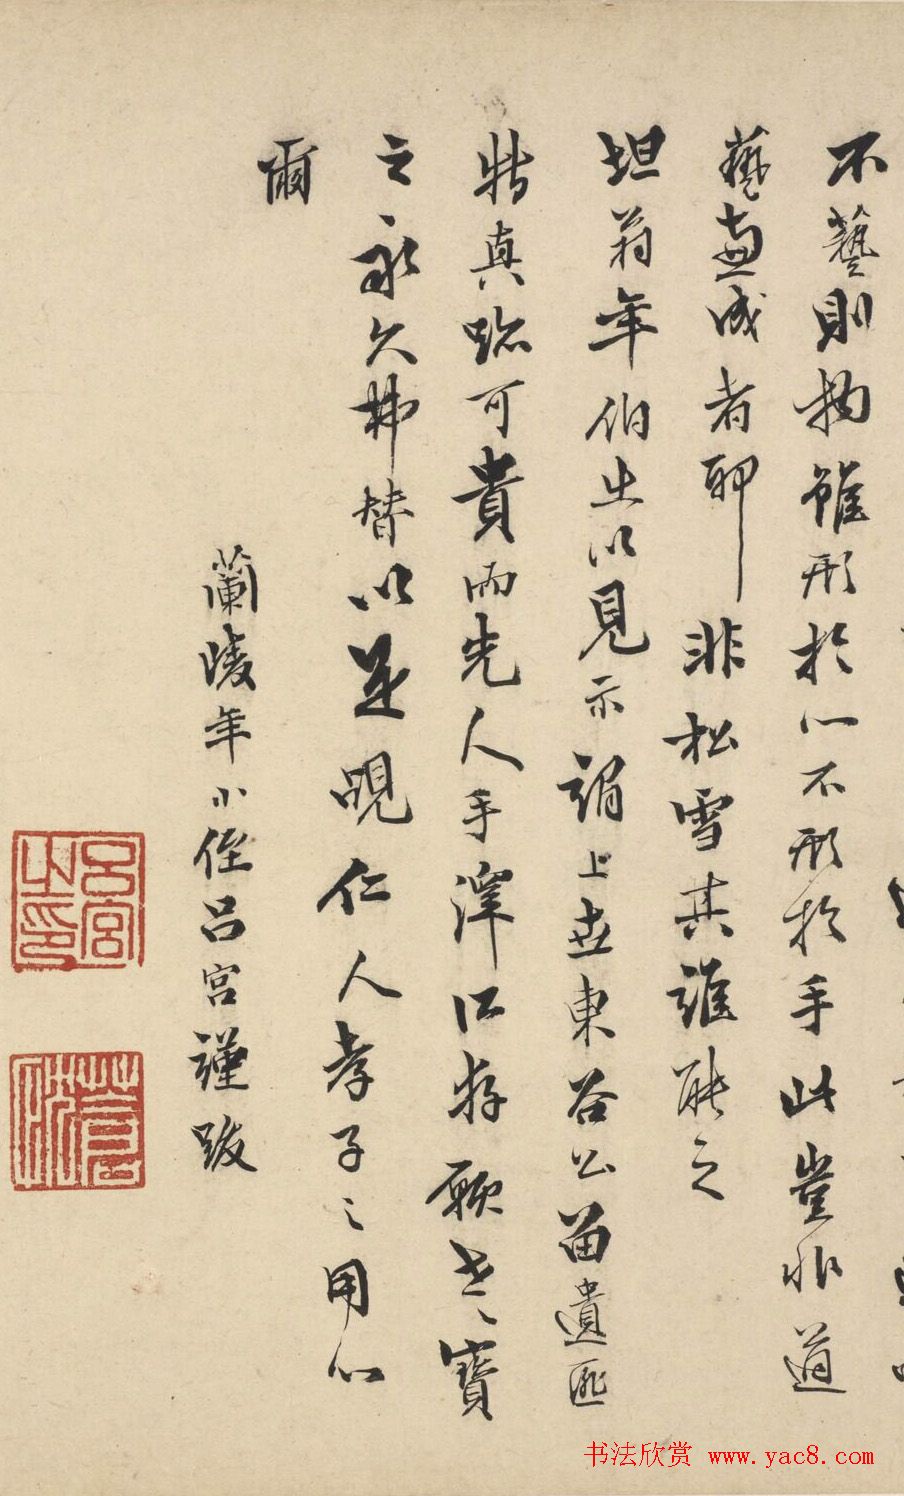 不藝則物雖形於心不形於手此豈非道
藝兼成者耶非松雪其誰能之
坦翁年伯出以見示謂上世東谷公留遺匪
特真跡可貴而先人手澤所存願世世寶
之永久弗替以是覘仁人孝子之用心
爾
蘭陵年小侄呂宮謹跋
呂宮之印
书法欣赏 www.yac8.com